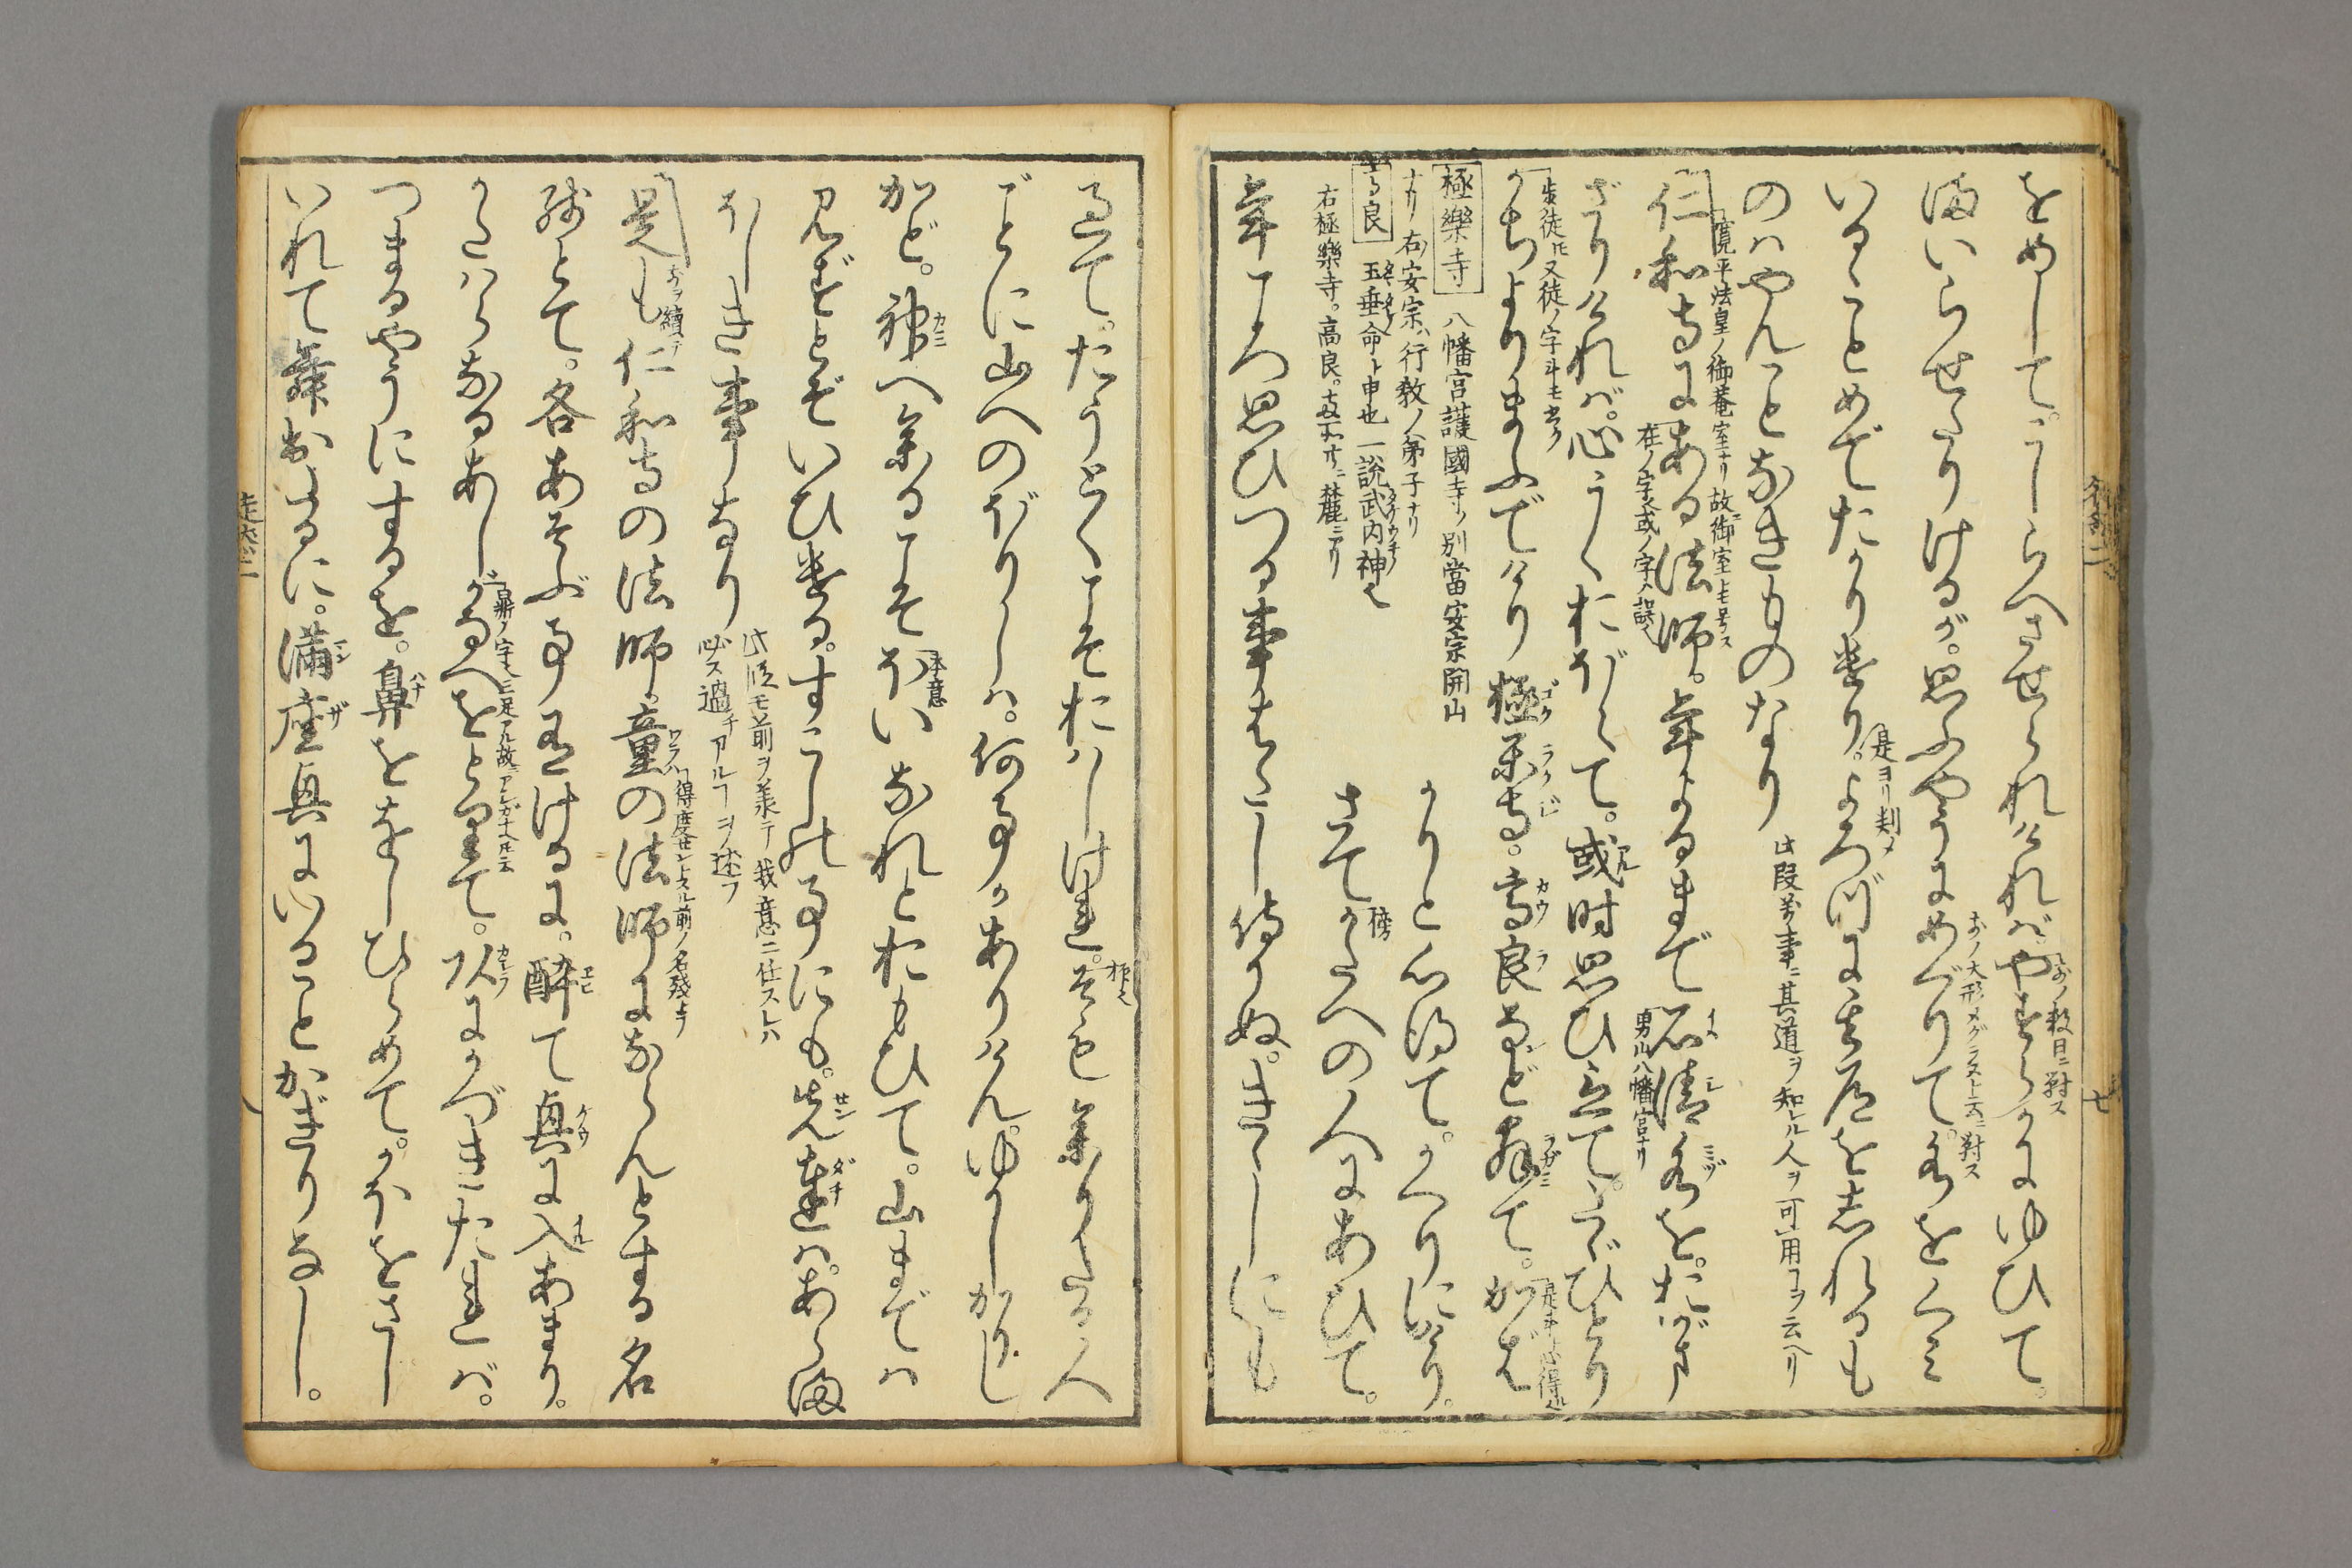 をめして。こしらへさせられければ。やすらかにゆひて。
まいらせたりけるが。思ふやうにめぐりて。水をくみ
いるゝことめでたかりけり。よろづに其道をしれるも
のはやんごとなきものなり
此段万事ニ其道ヲ知レル人ヲ可用コヲ云ヘリ
仁和寺にある法師。年よるまで石清水を。おがま
寛平法皇ノ御菴室ナリ故ニ御室トモ号ス
勇山八幡宮ナリ
ざりければ。心うくおぼえて。或時思ひ立て。たゞひとり
かちよりまふでけり極楽寺。高良など拝て。かばか
極樂寺
八幡宮護國寺ノ別當安宗開山
ナリ右安宗ハ行教ノ弟子ナリ
高良
玉垂命ト申也一説武内神也
右極樂寺。高良。
麓ニアリ
かりと心得て。かへりにけり。
さてかたへの人にあひて。
年ごろ思ひつる事はたし侍りぬ。きゝしにも
過て。たうとくこそおはしけれ。そも参りたる人
ごとに山へのぼりしは。何事かありけん。ゆかしかりし
かど。神へ参るこそほいなれとおもひて。山まではは
見ずとぞいひける。すこしの事にも。先達はあらま
ほしき事なり
此段モ前ヲ羕テ我意ニ任スレハ
必ス過チアルコヲ述フ
是も仁和寺の法師。童の法師にならんとする名
得度セントスル前ノ名残ナリ
残とて。各あそぶ事有けるに。酔て興に入あまり。
かたはらなるあしがなへをとりて。頭にかづきたれば。
つまるやうにするを。鼻をおしひらめて。かほをさし
いれて舞出たるに。満座興にいることかぎりなし。